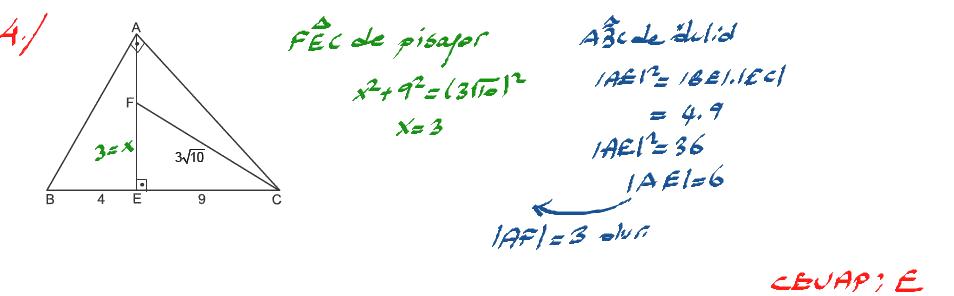 4.)
A
F
3=x
3√10
B 4 E 9 C
FEC de pisagor
x²+9²=(3√10)²
x=3
ABC de öklid
|AE|²=|BE|.|EC|
= 4.9
|AE|²=36
|AE|=6
|AF|=3 olur
CEVAP: E